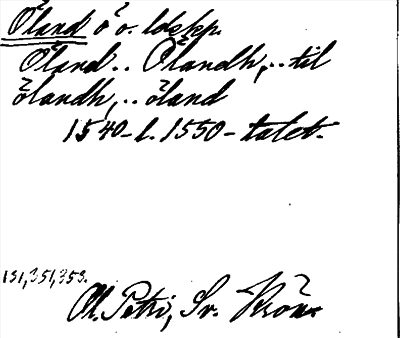 Öland ö o. ldskp.
Öland.. Ölandh,.. til
ölandh,.. öland
1540- l. 1550-talet.
131,351,353.
Ol. Petri, Sv. Krön.